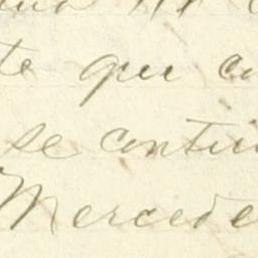 te que co
se contin
Mercede